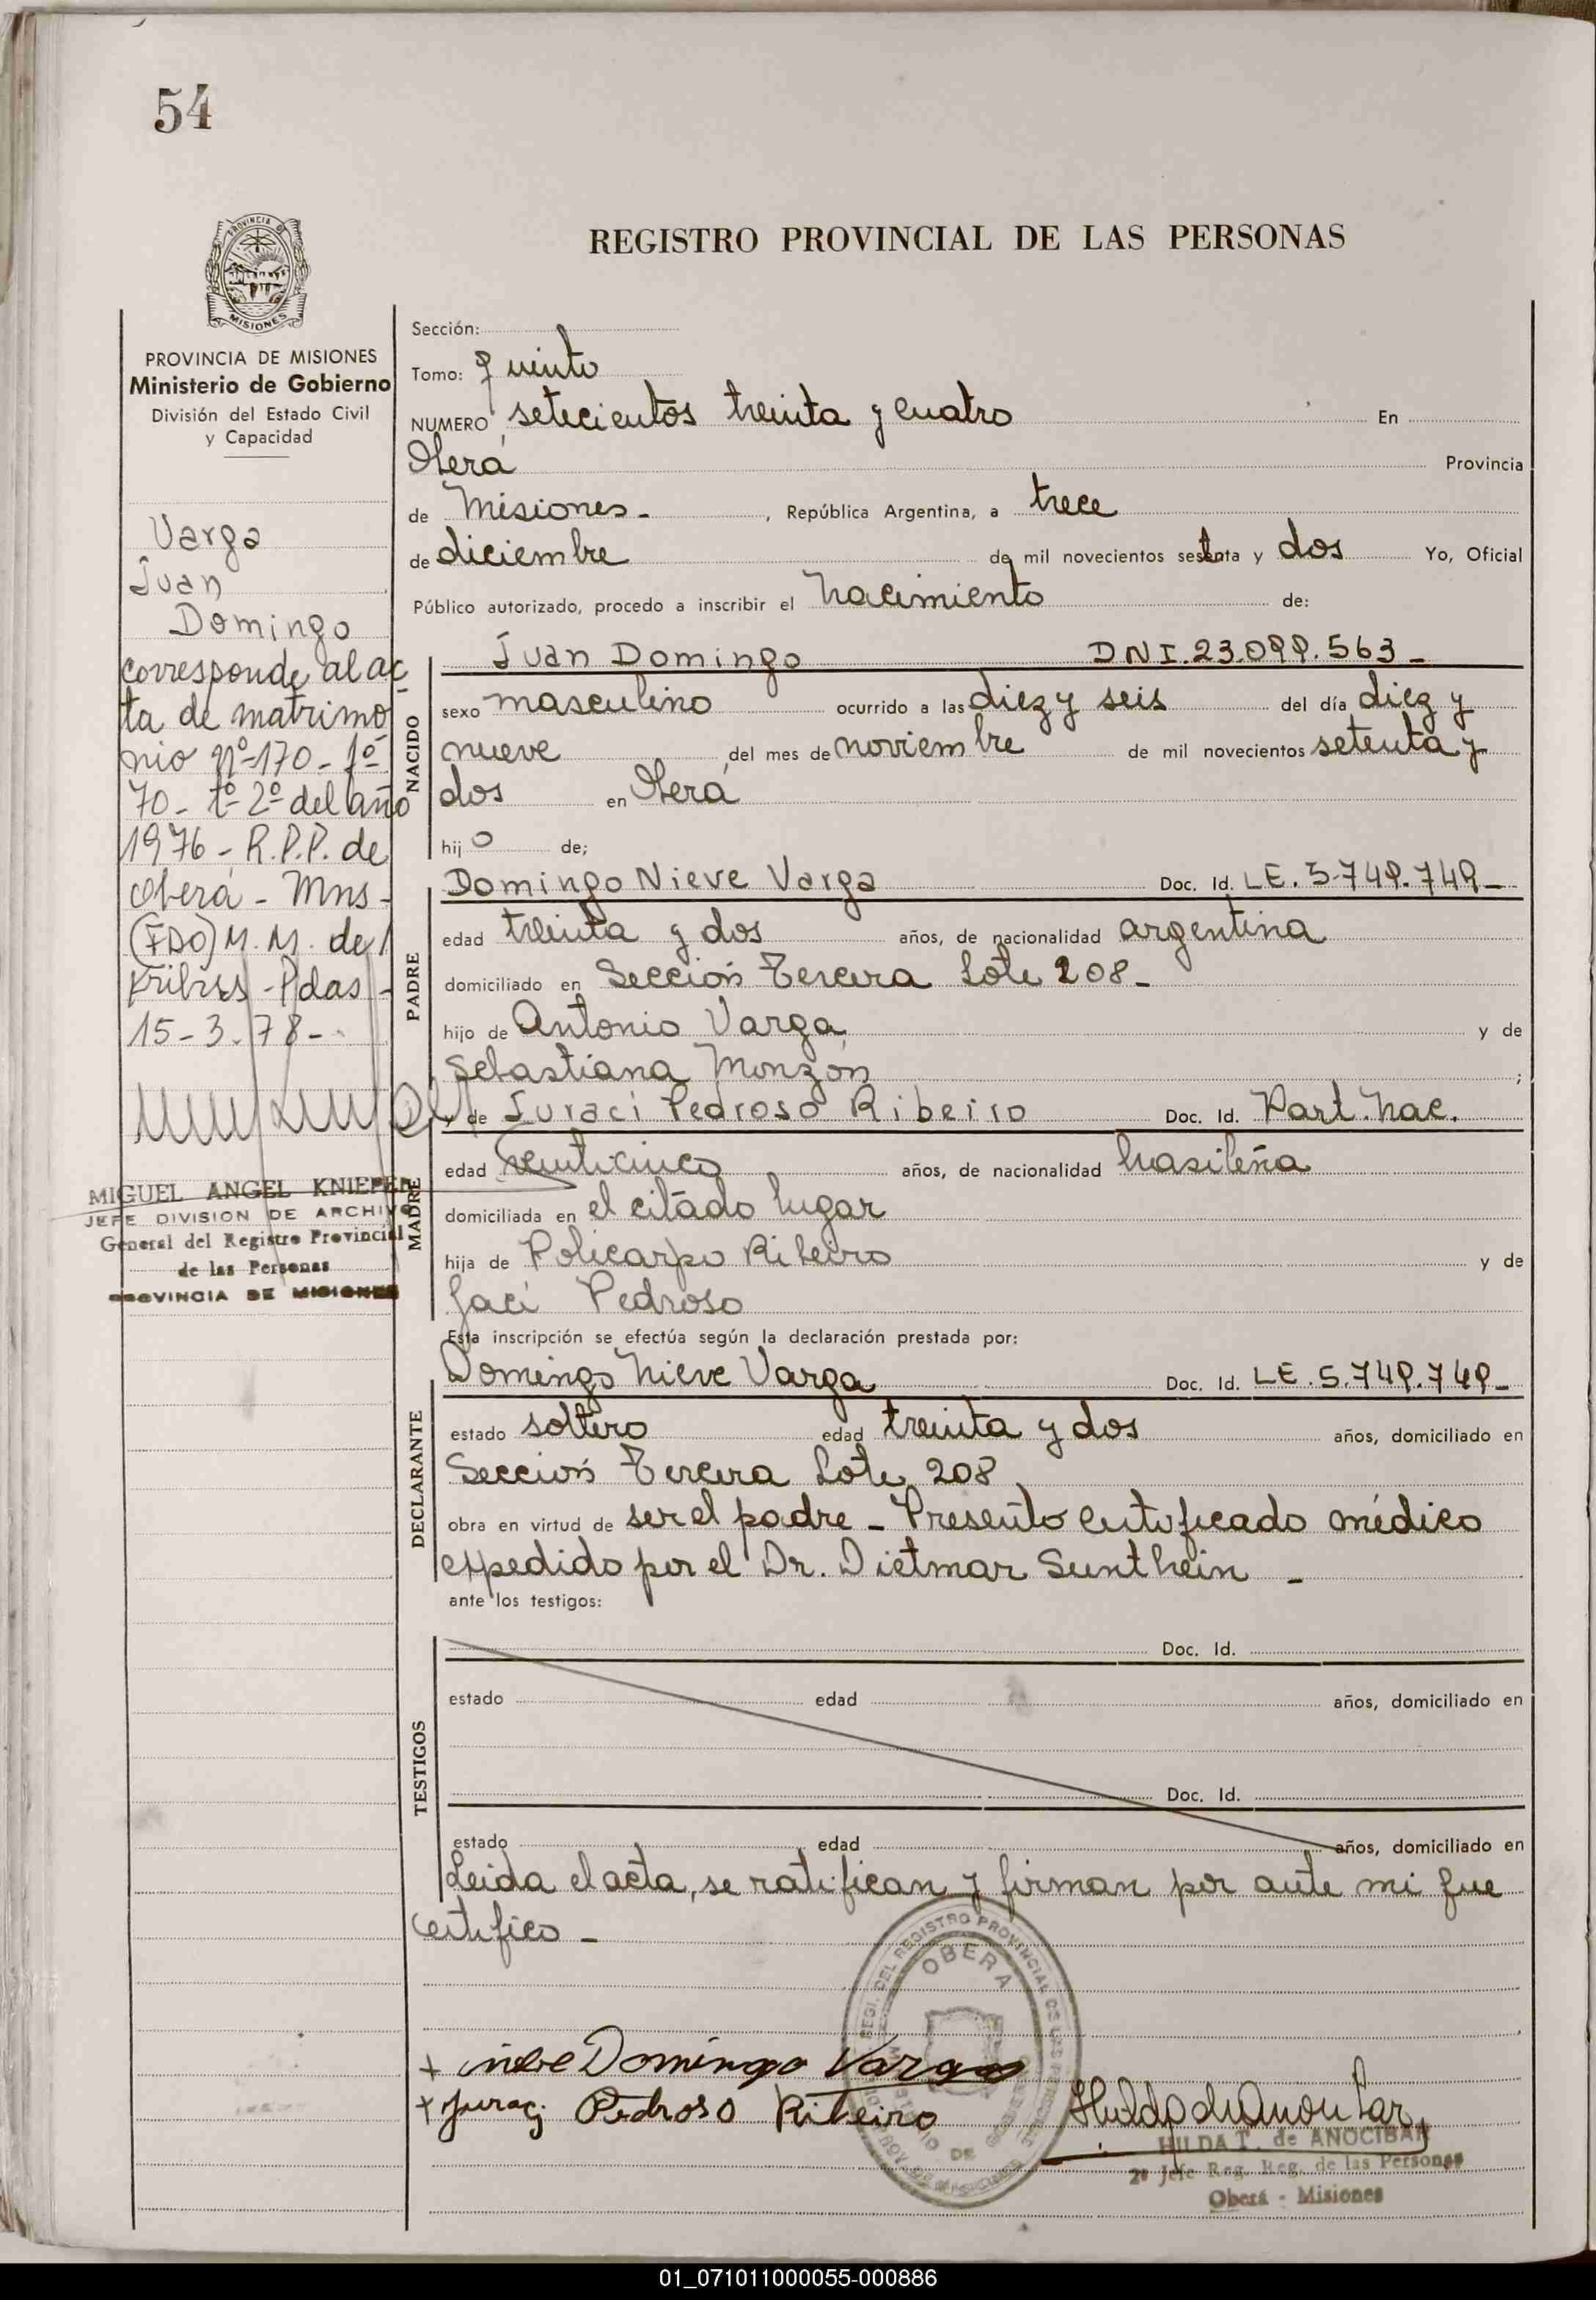 54
REGISTRO PROVINCIAL DE LAS PERSONAS
PROVINCIA DE
MISIONES
PROVINCIA DE MISIONES
Ministerio de Gobierno
División del Estado Civil
y Capacidad
Varga
Juan
Domingo
corresponde al ac
ta de matrimo
nio nº 170 - fº
70 - tº 2º del año
1976 - R.P.P. de
Oberá - Mns -
(FDO) M. M. de
Pdas -
15 - 3 - 78 -
MIGUEL ANGEL KNIEPER
JEFE DIVISION DE ARCHIVO
General del Registro Provincial
de las Personas
PROVINCIA DE MISIONES
Sección:
Tomo: quinto
NUMERO setecientos treinta y cuatro En
Oberá Provincia
de Misiones - , República Argentina, a trece
de diciembre de mil novecientos setenta y dos Yo, Oficial
Público autorizado, procedo a inscribir el nacimiento de:
NACIDO
Juan Domingo DNI. 23.099.563 -
sexo masculino ocurrido a las diez y seis del día diez y
nueve del mes de noviembre de mil novecientos setenta y
dos en Oberá
hijo de;
PADRE
Domingo Nieve Varga Doc. Id. LE. 5.749.749 -
edad treinta y dos años, de nacionalidad argentina
domiciliado en Sección Tercera Lote 208 -
hijo de Antonio Varga y de
Sebastiana Monzón ;
MADRE
y de Juraci Pedroso Ribeiro Doc. Id. Part. nac.
edad veinticinco años, de nacionalidad brasileña
domiciliada en el citado lugar
hija de Policarpo Ribeiro y de
Jaci Pedroso
Esta inscripción se efectúa según la declaración prestada por:
DECLARANTE
Domingo Nieve Varga Doc. Id. LE. 5.749.749 -
estado soltero edad treinta y dos años, domiciliado en
Sección Tercera Lote 208
obra en virtud de ser el padre - Presentó certificado médico
expedido por el Dr. Dietmar Sunthein -
ante los testigos:
TESTIGOS
Doc. Id.
estado edad años, domiciliado en
Doc. Id.
estado edad años, domiciliado en
Leida el acta, se ratifican y firman por ante mi que
certifico -
OBERA
+ Domingo Varga
+ Juraci Pedroso Ribeiro
HILDA T. de ANOCIBAR
2º Jefe Reg. Reg. de las Personas
Oberá - Misiones
01_071011000055-000886